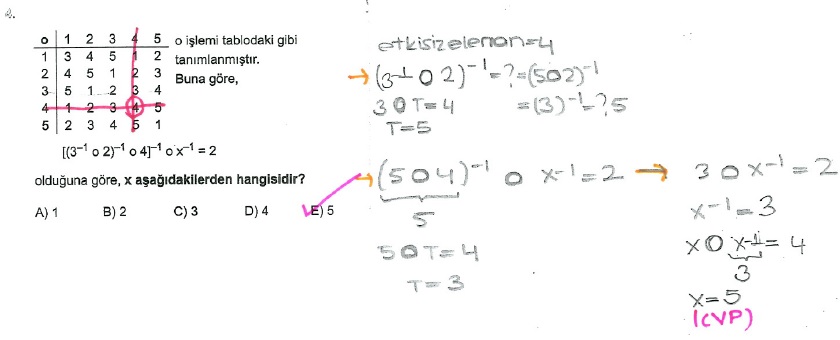 2.
o 1 2 3 4 5
1 3 4 5 1 2
2 4 5 1 2 3
3 5 1 2 3 4
4 1 2 3 4 5
5 2 3 4 5 1
o işlemi tablodaki gibi
tanımlanmıştır.
Buna göre,
[(3⁻¹ o 2)⁻¹ o 4]⁻¹ o x⁻¹ = 2
olduğuna göre, x aşağıdakilerden hangisidir?
A) 1 B) 2 C) 3 D) 4 E) 5
etkisiz eleman=4
→ (3⁻¹ o 2)⁻¹=?=(5o2)⁻¹
3 o T=4 =(3)⁻¹=?5
T=5
→ (5o4)⁻¹ o x⁻¹=2 → 3 o x⁻¹=2
5
x⁻¹=3
5 o T=4
T=3
x o x⁻¹=4
3
x=5
(CVP)